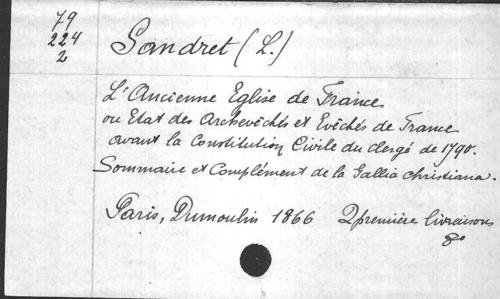 79
224
2
Sandret (L.)
L'Ancienne Eglise de France
ou Etat des Archevêchés et Evêchés de France
avant la Constitution Civile du clergé de 1790.
Sommaire et Complément de la Gallia Christiana.
Paris, Dumoulin 1866 2 première livraisons
8o